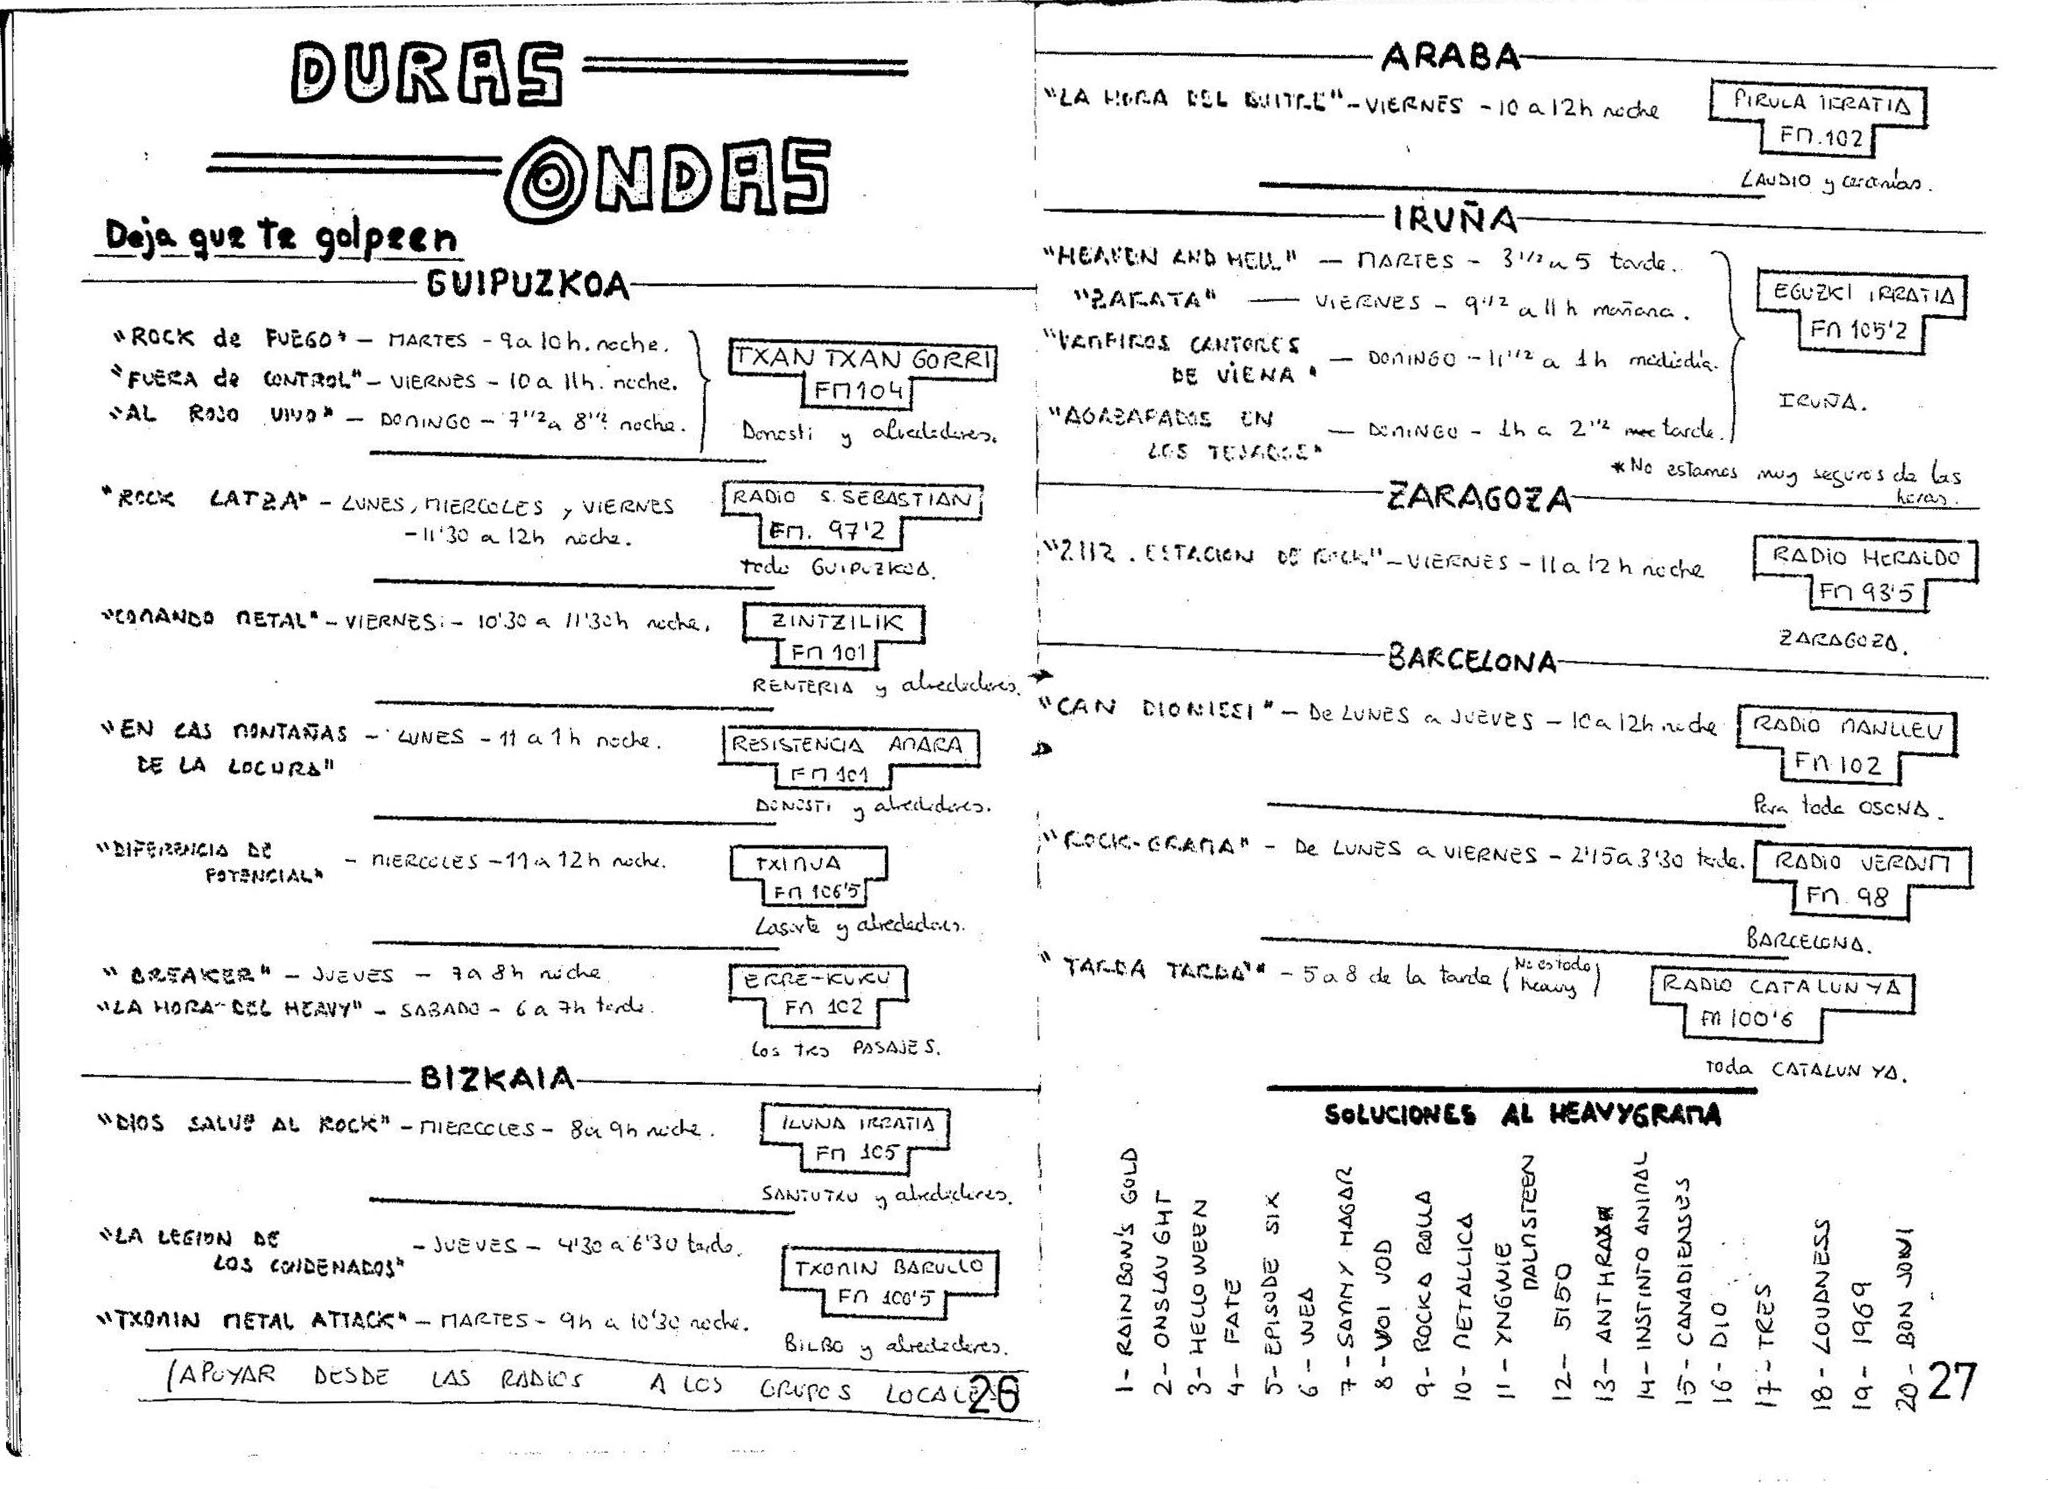 DURAS
ONDAS
Deja que te golpeen
GUIPUZKOA
"ROCK de FUEGO" - MARTES - 9 a 10h. noche.
"FUERA de CONTROL" - VIERNES - 10 a 11h. noche.
"AL ROJO VIVO" - DOMINGO - 7 1/2 a 8 1/2 noche.
TXAN TXAN GORRI
FM 104
Donosti y alrededores.
"ROCK LATZA" - LUNES, MIERCOLES y VIERNES
- 11'30 a 12h noche.
RADIO S. SEBASTIAN
FM. 97'2
todo GUIPUZKOA.
"COMANDO METAL" - VIERNES: - 10'30 a 11'30h noche.
ZINTZILIK
FM 101
RENTERIA y alrededores.
"EN LAS MONTAÑAS - LUNES - 11 a 1h noche.
DE LA LOCURA"
RESISTENCIA AMARA
FM 101
DONOSTI y alrededores.
"DIFERENCIA DE - MIERCOLES - 11 a 12h noche.
POTENCIAL"
TXINUA
FM 106'5
Lasarte y alrededores.
"BREAKER" - JUEVES - 7 a 8h noche
"LA HORA DEL HEAVY" - SABADO - 6 a 7h tarde.
ERRE-KUKU
FM 102
Los tres PASAJES.
BIZKAIA
"DIOS SALVE AL ROCK" - MIERCOLES - 8 a 9h noche.
ILUNA IRRATIA
FM 105
SANTUTXU y alrededores.
"LA LEGION DE - JUEVES - 4'30 a 6'30 tarde.
LOS CONDENADOS"
"TXOMIN METAL ATTACK" - MARTES - 9h a 10'30 noche.
TXOMIN BARULLO
FM 100'5
BILBO y alrededores.
¡APOYAR DESDE LAS RADIOS A LOS GRUPOS LOCALES!
26
ARABA
"LA HORA DEL BUITRE" - VIERNES - 10 a 12h noche
PIRULA IRRATIA
FM. 102
LAUDIO y cercanías.
IRUÑA
"HEAVEN AND HELL" - MARTES - 3 1/2 a 5 tarde.
"ZARATA" - VIERNES - 9 1/2 a 11h mañana.
"VAMPIROS CANTORES
DE VIENA" - DOMINGO - 11 1/2 a 1h mediodía.
"AGAZAPADOS EN
LOS TEJADOS" - DOMINGO - 1h a 2 1/2 tarde.
EGUZKI IRRATIA
FM 105'2
IRUÑA.
*No estamos muy seguros de las
horas.
ZARAGOZA
"2112. ESTACION DE ROCK" - VIERNES - 11 a 12h noche
RADIO HERALDO
FM 93'5
ZARAGOZA.
BARCELONA
"CAN DIONISI" - De LUNES a JUEVES - 10 a 12h noche
RADIO MANLLEU
FM 102
Para toda OSONA.
"ROCK-GRAMA" - De LUNES a VIERNES - 2'15 a 3'30 tarde.
RADIO VERDUM
FM 98
BARCELONA.
"TARDA TARDA" - 5 a 8 de la tarde (No es todo heavy)
RADIO CATALUNYA
FM 100'6
Toda CATALUNYA.
SOLUCIONES AL HEAVYGRAMA
1- RAINBOW'S GOLD
2- ONSLAUGHT
3- HELLOWEEN
4- FATE
5- EPISODE SIX
6- WEA
7- SAMMY HAGAR
8- VOI VOD
9- ROCKA ROLLA
10- METALLICA
11- YNGWIE
MALMSTEEN
12- 5150
13- ANTHRAX
14- INSTINTO ANIMAL
15- CANADIENSES
16- DIO
17- TRES
18- LOUDNESS
19- 1969
20- BON JOVI
27